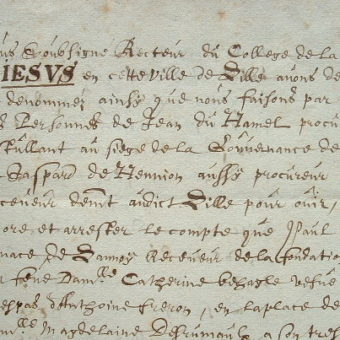 ous Soubsigné Recteur du College de la
IESVS en cette ville de Lille avons de
denommez ainsy que nous faisons par
s Personnes de Jean du Hamel procu
stullant au siege de la Gouvenance de
Gaspard de Hennion aussy procureur
ceveur demt audict Lille pour ouir,
ore et arrester le compte que Paul
nace de Lannoy Receveur de la fondation
feue Dam.lle Catherine behagle vefue
Anthoine Freron, en la place de
m.lle Magdelaine Desrumaulx a son tres